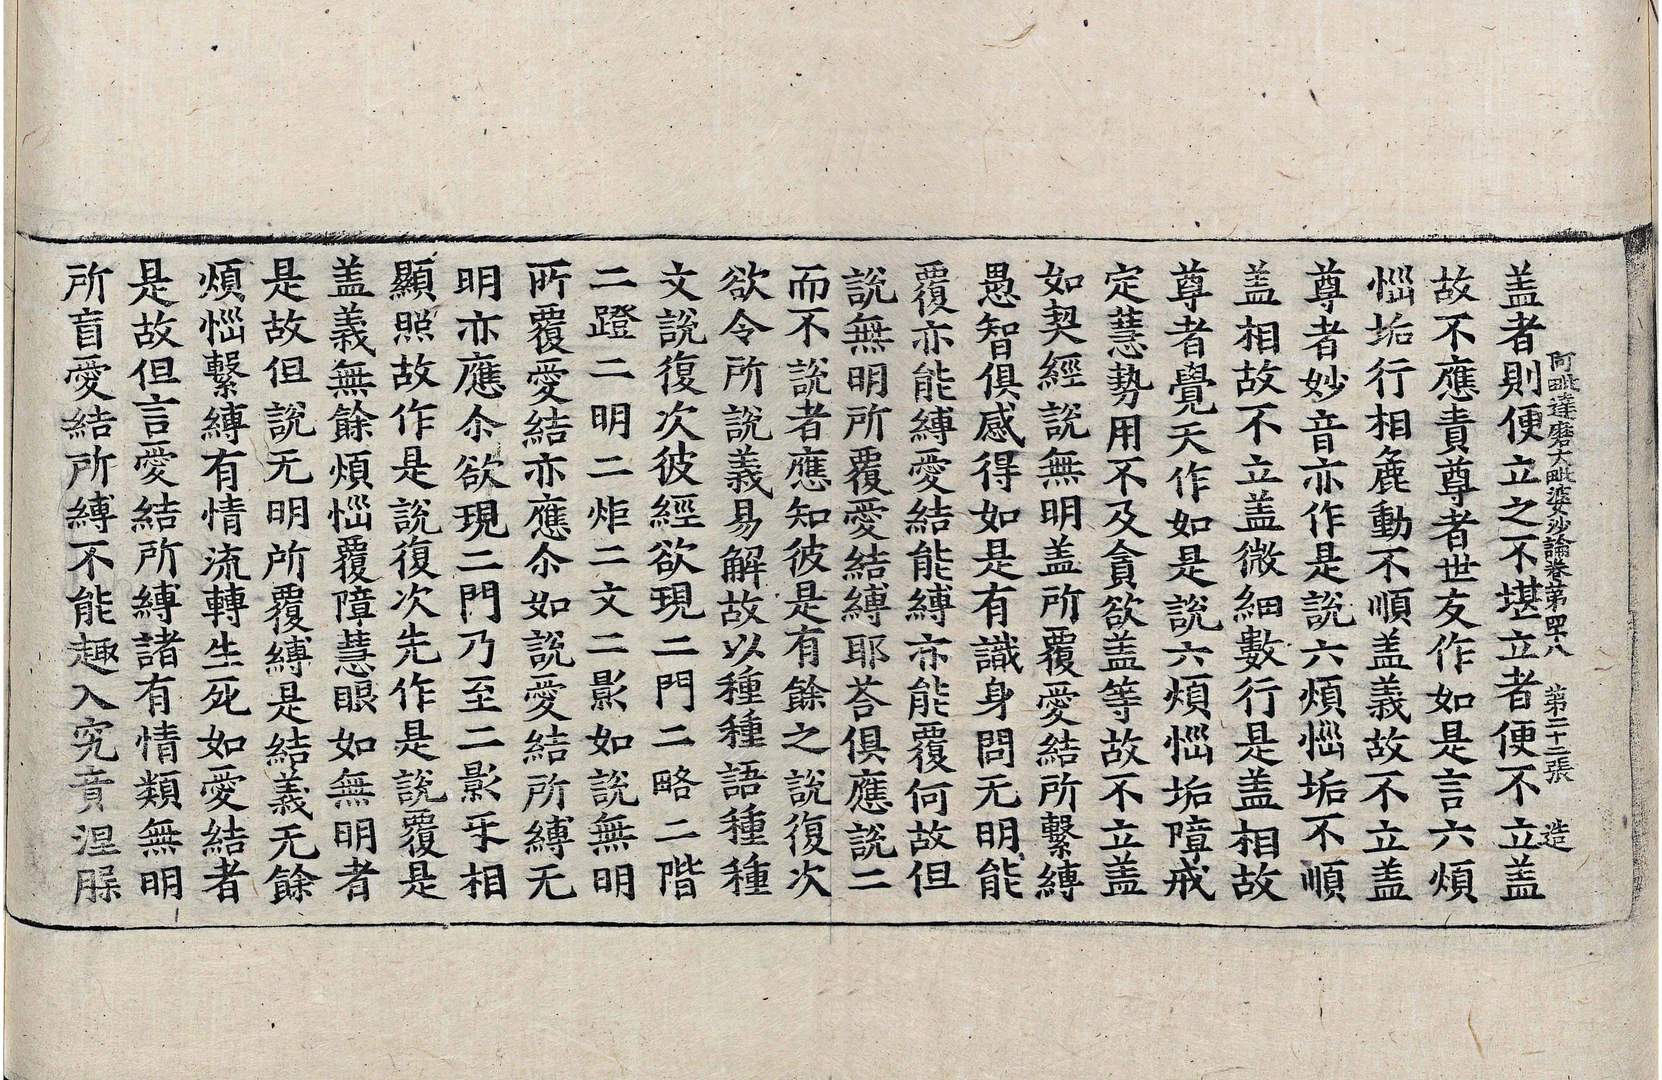 阿毗達磨大毗婆沙論卷第四十八　第二十二張　造
盖者則便立之不堪立者便不立盖
故不應責尊者世友作如是言六煩
惱垢行相麁動不順盖義故不立盖
尊者妙音亦作是說六煩惱垢不順
盖相故不立盖微細數行是盖相故
尊者覺天作如是說六煩惱垢障戒
定慧勢用不及貪欲盖等故不立盖
如契經說無明盖所覆愛結所繫縛
愚智俱感得如是有識身問无明能
覆亦能縛愛結能縛亦能覆何故但
說無明所覆愛結縛耶荅俱應說二
而不說者應知彼是有餘之說復次
欲令所說義易解故以種種語種種
文說復次彼經欲現二門二略二階
二蹬二明二炬二文二影如說無明
所覆愛結亦應尒如說愛結所縛无
明亦應尒欲現二門乃至二影乐相
顯照故作是說復次先作是說覆是
盖義無餘煩惱覆障慧眼如無明者
是故但說无明所覆縛是結義无餘
煩惱繫縛有情流轉生死如愛結者
是故但言愛結所縛諸有情類無明
所盲愛結所縛不能趣入究竟涅槃